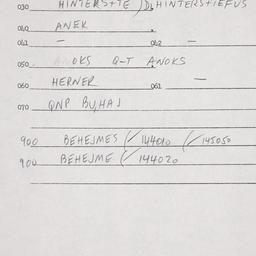 030 HINTERSTTE / D. HINTERSTIEFUS
040 ANEK .
041 – 042 –
050 ANOKS Q-T ANOKS
060 HERNER 061 –
070 QNP BU, HAJ
900 BEHEJMES (✓ 144010 (✓ 145050
900 BEHEJME (✓ 144020